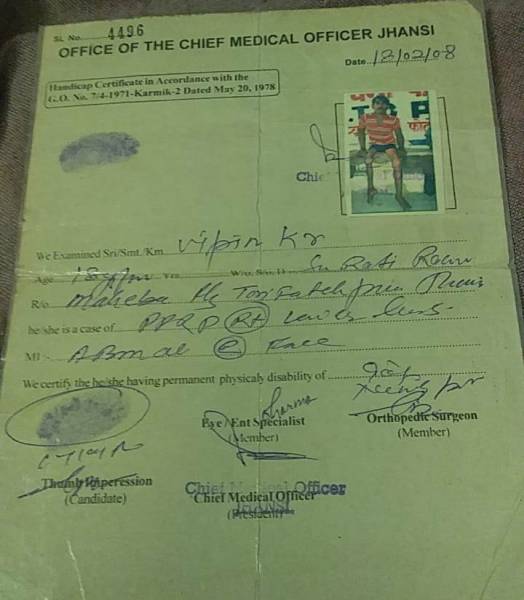 SL No. 4496
OFFICE OF THE CHIEF MEDICAL OFFICER JHANSI
Date 12/02/08
Handicap Certificate in Accordance with the
G.O. No. 7/4-1971-Karmik-2 Dated May 20, 1978
Chie
We Examined Sri/Smt./Km Vipin Kr
Age 18y/m Yrs. W/o, S/o, D Sri Rati Ram
R/o Maheba
he/she is a case of PPRP Rt Lower Limb
MI -
We certify the he/she having permanent physicaly disability of
Sharma
Eye / Ent Specialist
(Member)
Orthopedic Surgeon
(Member)
Thumb Imperession
(Candidate)
Chief Medical Officer
JHANSI
Chief Medical Officer
(President)